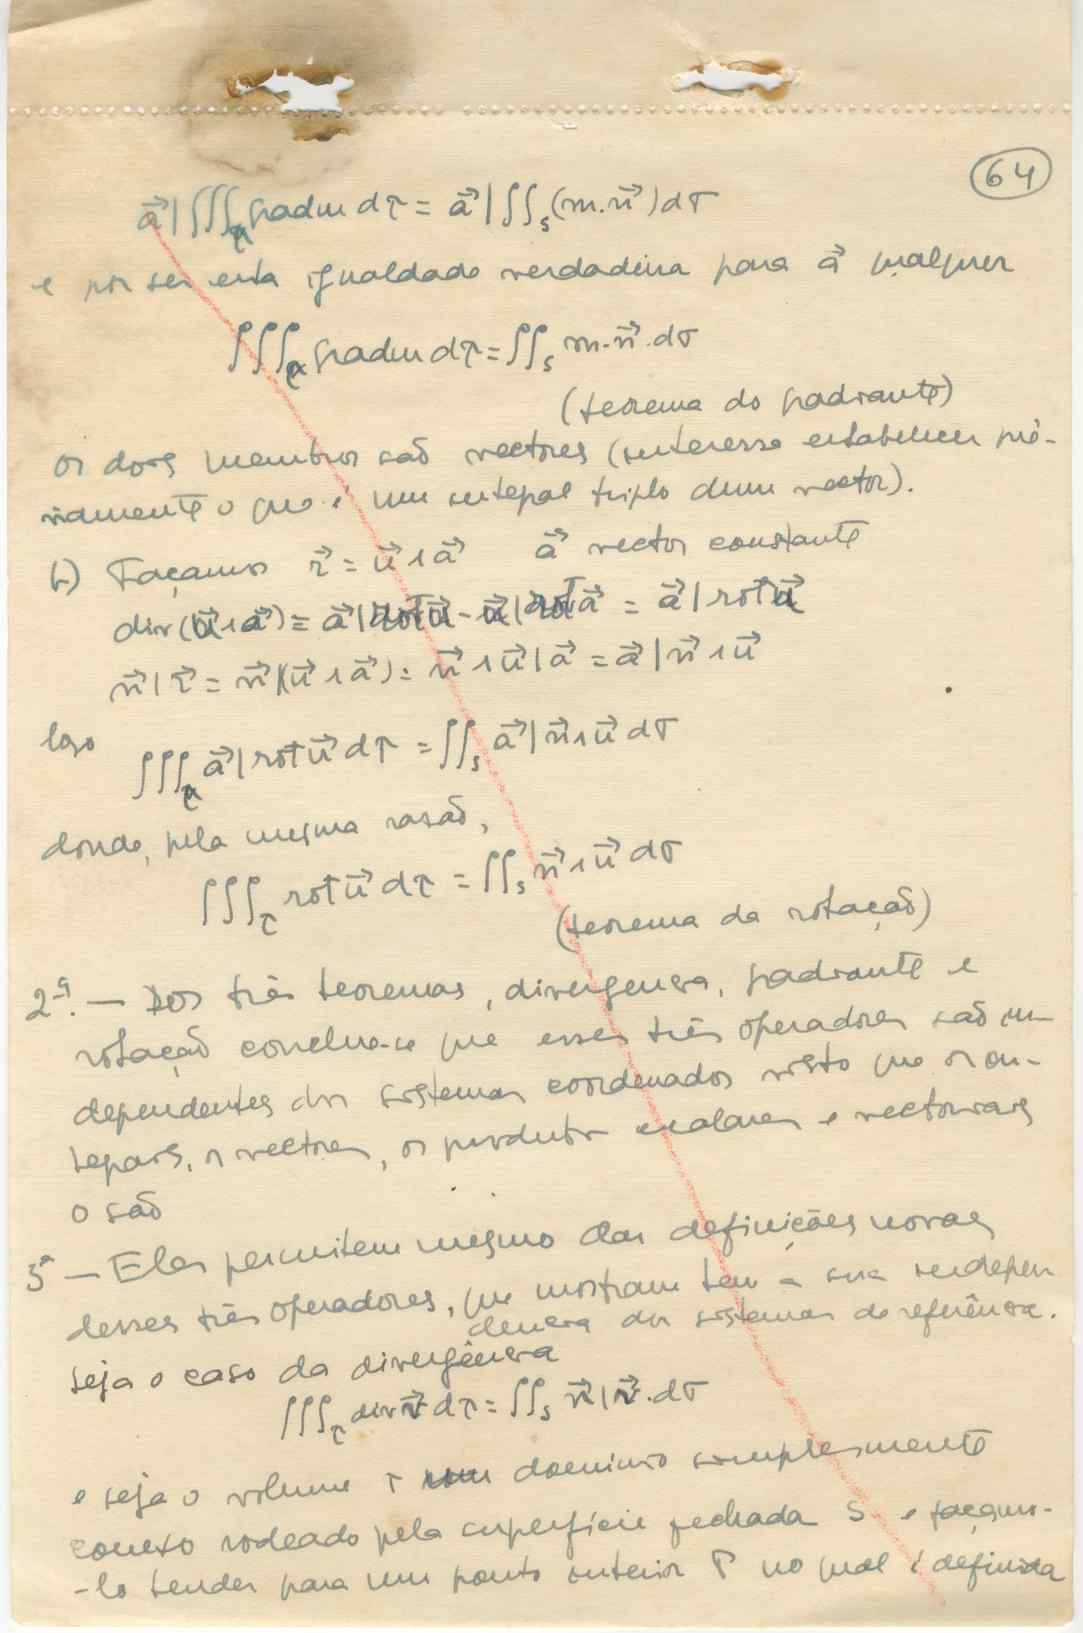 64
a⃗ | ∭_τ grad m dτ = a⃗ | ∬_s (m.n⃗) dσ
e por ser esta igualdade verdadeira para a⃗ qualquer
∭_τ grad m dτ = ∬_s m.n⃗.dσ
(teorema do gradiante)
Os dois membros são vectores (interessa estabelecer pré-
viamente o que é um integral triplo dum vector).
b) Façamos r⃗ = u⃗ ∧ a⃗   a⃗ vector constante
div (u⃗ ∧ a⃗) = a⃗ | rot u⃗ - u⃗ | rot a⃗ = a⃗ | rot u⃗
n⃗ | r⃗ = n⃗ | (u⃗ ∧ a⃗) = n⃗ ∧ u⃗ | a⃗ = a⃗ | n⃗ ∧ u⃗
logo
∭_τ a⃗ | rot u⃗ dτ = ∬_s a⃗ | n⃗ ∧ u⃗ dσ
donde, pela mesma rasão,
∭_τ rot u⃗ dτ = ∬_s n⃗ ∧ u⃗ dσ
(teorema da rotação)
2ª. — Dos três teoremas, divergencia, gradiante e
rotação conclue-se que esses três operadores são in-
dependentes dos sistemas coordenados visto que os in-
tegrais, os vectores, os produtos escalares e vectoriais
o são
3ª — Eles permitem mesmo dar definições novas
desses três operadores, que mostram bem a sua indepen
dencia dos sistemas de referência.
Seja o caso da divergência
∭_τ div r⃗ dτ = ∬_s n⃗ | r⃗.dσ
e seja o volume τ dominio simplesmente
conexo rodeado pela superfície fechada S e façamo-
-lo tender para um ponto interior P no qual é definida